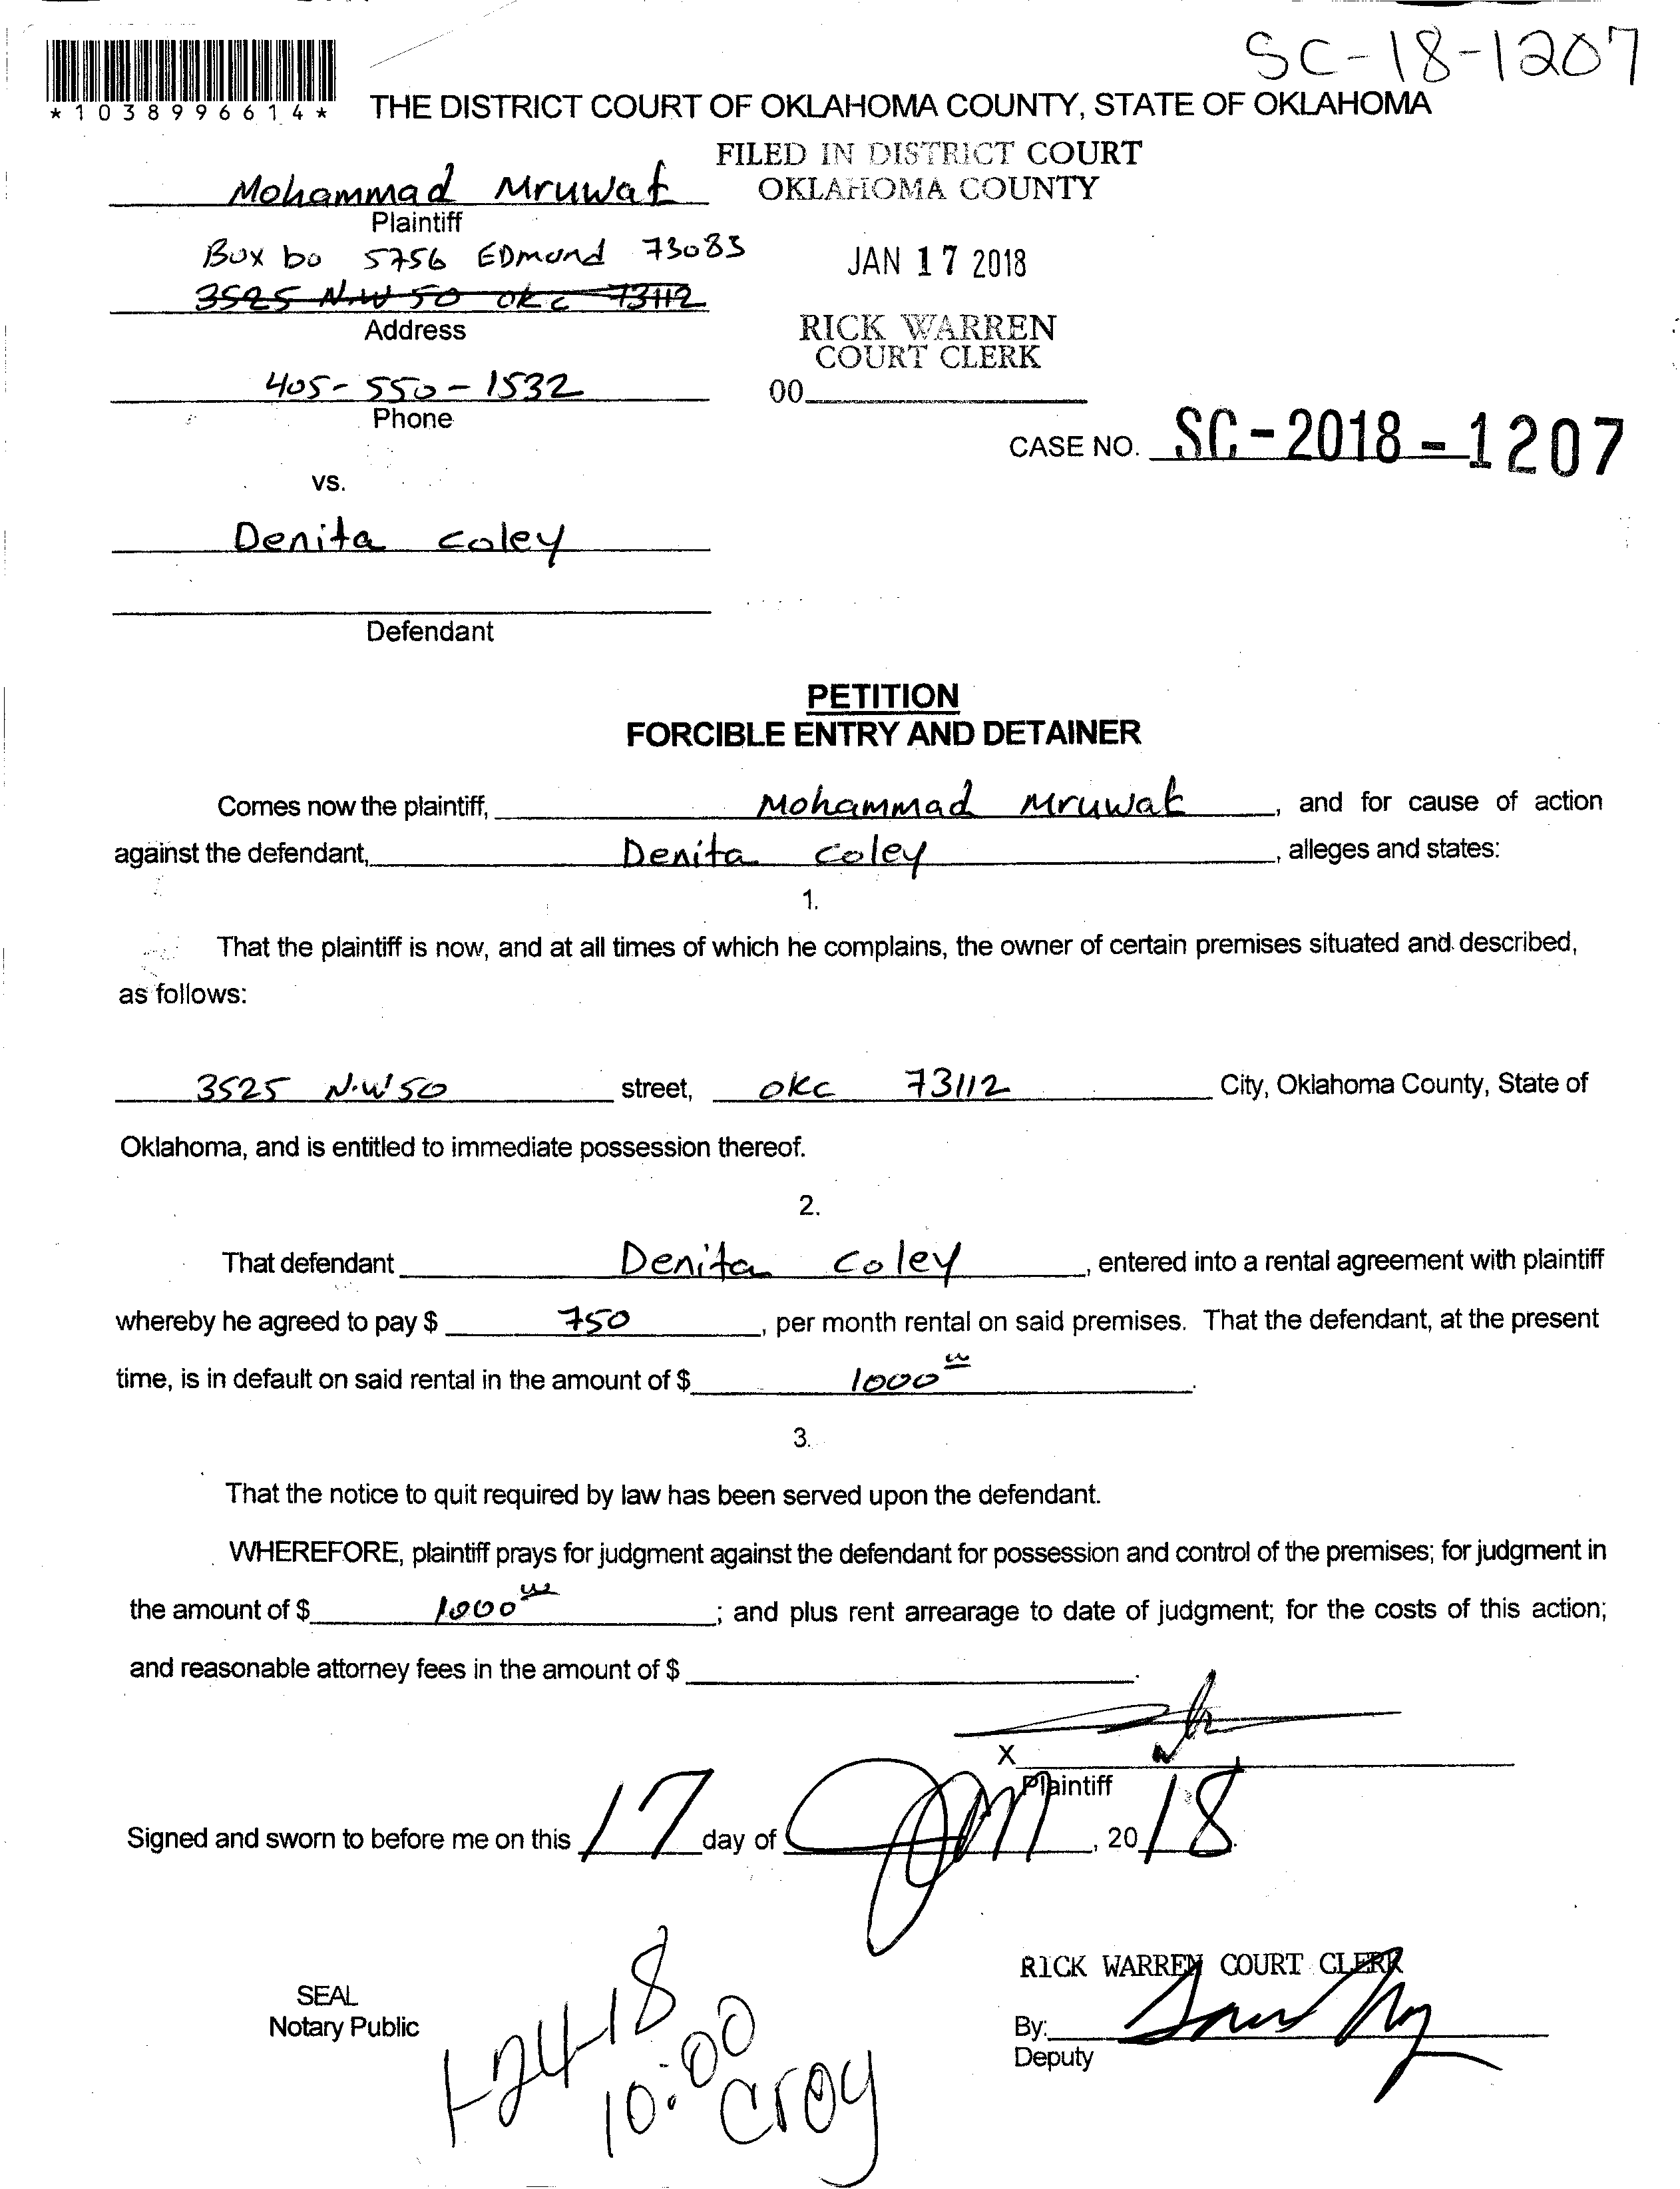 SC-18-1207
*1038996614*
THE DISTRICT COURT OF OKLAHOMA COUNTY, STATE OF OKLAHOMA
FILED IN DISTRICT COURT
OKLAHOMA COUNTY
Mohammad Mruwat
Plaintiff
Box bo 5756 EDmond 73083
JAN 17 2018
3525 N.W 50 OKC 73112
Address
RICK WARREN
COURT CLERK
405-550-1532
00
Phone
CASE NO. SC-2018-1207
vs.
Denita Coley
Defendant
PETITION
FORCIBLE ENTRY AND DETAINER
Comes now the plaintiff, Mohammad Mruwat, and for cause of action
against the defendant, Denita Coley, alleges and states:
1.
That the plaintiff is now, and at all times of which he complains, the owner of certain premises situated and described,
as follows:
3525 N.W 50 street, OKC 73112 City, Oklahoma County, State of
Oklahoma, and is entitled to immediate possession thereof.
2.
That defendant Denita Coley, entered into a rental agreement with plaintiff
whereby he agreed to pay $ 750, per month rental on said premises. That the defendant, at the present
time, is in default on said rental in the amount of $ 1000.
3.
That the notice to quit required by law has been served upon the defendant.
WHEREFORE, plaintiff prays for judgment against the defendant for possession and control of the premises; for judgment in
the amount of $ 1000; and plus rent arrearage to date of judgment; for the costs of this action;
and reasonable attorney fees in the amount of $ .
X
Plaintiff
Signed and sworn to before me on this 17 day of Jan, 20 18.
RICK WARREN COURT CLERK
SEAL
Notary Public
By:
Deputy
1-24-18
10:00
Croy